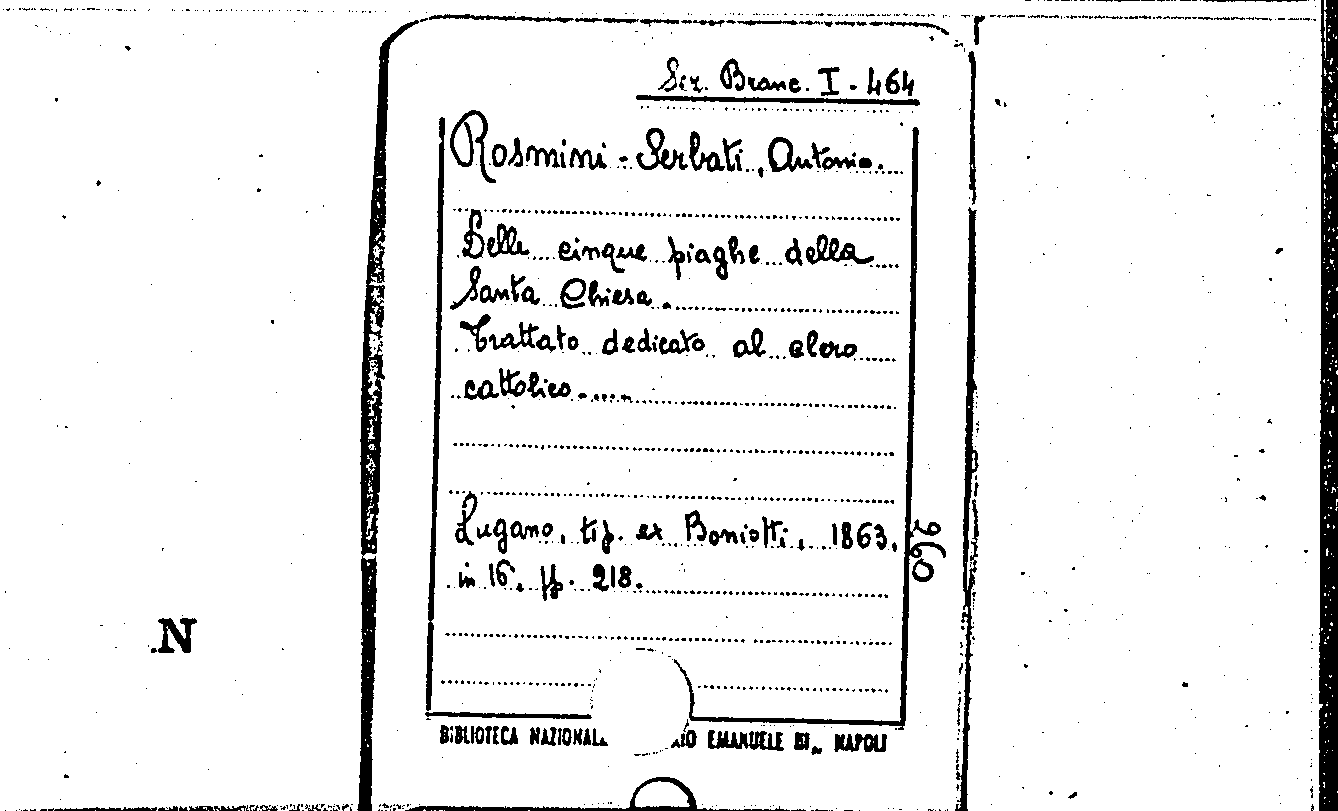 Scr. Branc. I - 464
Rosmini - Serbati, Antonio.
Delle cinque piaghe della
Santa Chiesa.
Trattato dedicato al clero
cattolico.....
Lugano, tip. ex Boniotti, 1863.
in 16, pp. 218.
960
N
BIBLIOTECA NAZIONAL EMANUELE III NAPOLI